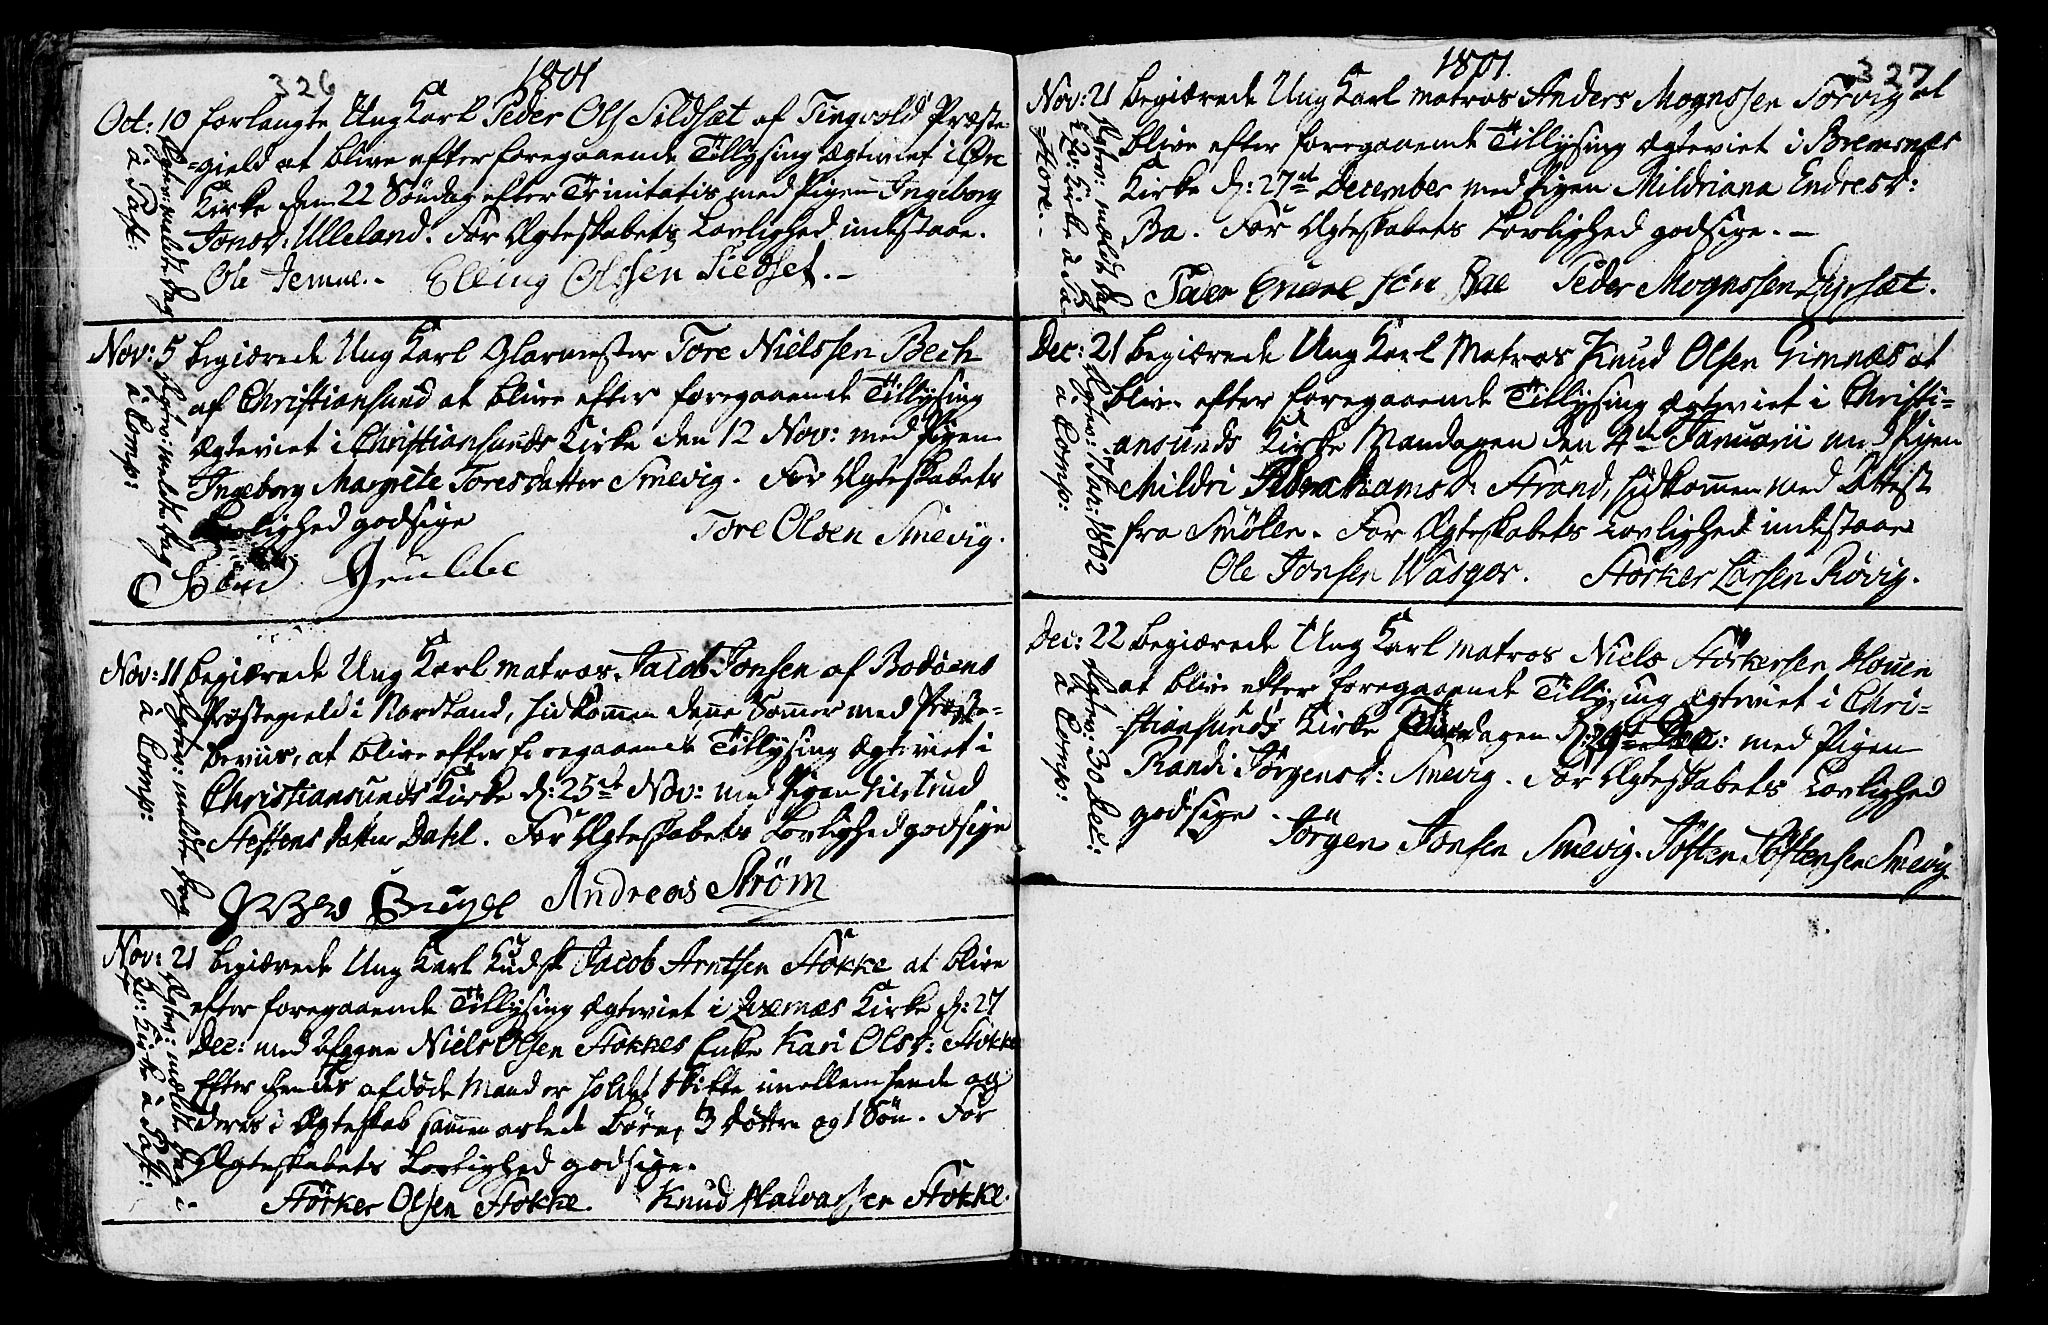 326
1801
Oct: 10 forlangte Ung Karl Peder Ols Sildsæt af Tingvold Præste-
gield at blive efter foregaaende Tillysing ægteviet i Øre
Kirke den 22 Søndag efter Trinitatis med Pigen Ingeborg
Jonsd: Ulleland. For Ægteskabets Lovlighed indestaae.
Ole Elling Olssen Siedset.
Ægtev: meldte Dag
à Past:
Nov: 5 begiærede Ung Karl Glarmester Tore Nielssen Bech
af Christiansund at blive efter foregaaende Tillysing
ægteviet i Christiansunds Kirke den 12 Nov: med Pigen
Ingeborg Margrete Toresdatter Smevig. For Ægteskabets
Lovlighed godsige Tore Olsen Smevig.
Ægtev: meldte Dag
à Comp:
Nov: 11 begiærede Ung Karl matros Jacob Jonsen af Bodøens
Præstegield i Nordland, hidkommen denne Sommer med Præste-
beviis, at blive efter foregaaende Tillysing ægteviet i
Christiansunds Kirke d: 25de Nov: med Pigen Giertrud
Steffens datter Dahl. For Ægteskabets Lovlighed godsige
Andreas Strøm
Ægtev: meldte Dag
à Comp:
Nov: 21 begiærede Ung Karl Kudsk Jacob Arntsen Stokke at blive
efter foregaaende Tillysing ægteviet i Qvernæs Kirke d: 27
Dec: med afgagne Niels Olsen Stokkes Enke Kari Olsd: Stokke
Efter hendes afdøde Mand er holdet Skifte imellem hende og
deres i Ægteskab sammen avlede Børn, 3 døttre og 1 Søn. For
Ægteskabets Lovlighed godsige.
Størker Olsen Stokke. Knud Halvorssen Stokke.
Ægtev: meldte Dag i
Qv: Kirke à Past:
327
1801.
Nov: 21 begiærede Ung Karl matros Anders Mognssen Sørvig at
blive efter foregaaende Tillysing ægteviet i Bremsnæs
Kirke d: 27de December med Pigen Mildriana Endresd:
Ba. For Ægteskabets Lovlighed godsige.
Peder Bae Peder Mognssen
Ægtev: meldte Dag
Dec: 21 begiærede Ung Karl Matros Knud Olsen Gimnæs at
blive efter foregaaende Tillysing ægteviet i Christi-
ansunds Kirke Mandagen den 4de Januarii med Pigen
Mildri Abrahamsd: Strand, hidkommen med Attest
fra Smølen. For Ægteskabets Lovlighed indestaae
Ole Jonsen Wasgor. Størker Larsen Røvig.
Ægtev: 1802
à Comp:
Dec: 22 begiærede Ung Karl matros Niels Størkersen Houen
at blive efter foregaaende Tillysing ægteviet i Chri-
stiansunds Kirke med Pigen
Randi Jørgensd: Smevig. For Ægteskabets Lovlighed
godsige.
Jørgen Jonsen Smevig. Josten Jostensen Smevig
Ægtev: 30 Dec:
à Comp: